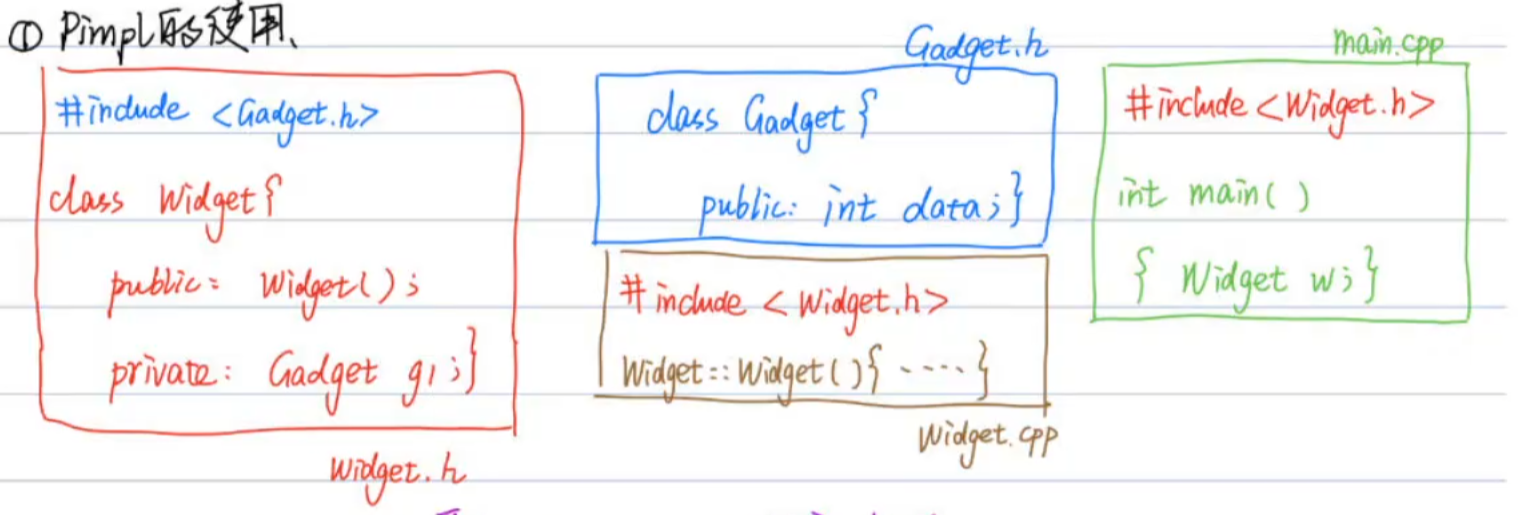 ① Pimpl的使用、
#include <Gadget.h>
class Widget{
public: Widget();
private: Gadget g1;}
Widget.h
Gadget.h
class Gadget{
public: int data;}
#include <Widget.h>
Widget::Widget(){ ····· }
Widget.cpp
main.cpp
#include <Widget.h>
int main()
{ Widget w;}